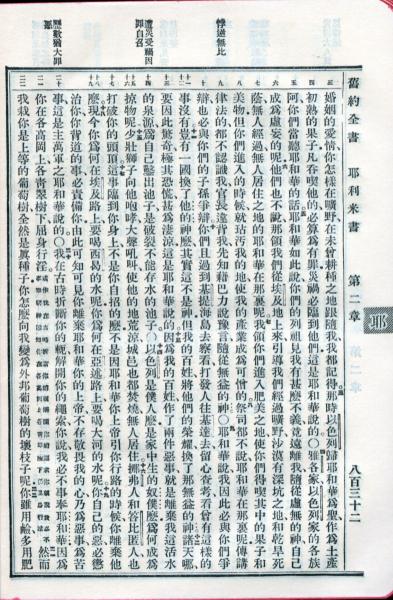 舊約全書 耶利米書 第二章 八百三十二
耶
婚姻的愛情你怎樣在曠野在未曾耕種之地跟隨我我都記得那時以色列歸耶和華爲聖作爲土產
初熟的果子凡吞喫他的必算爲有罪災禍必臨到他們這是耶和華說的〇雅各家以色列家的各族
阿你們當聽耶和華的話耶和華如此說你們的列祖見我有甚麼不義竟離我隨從虛無的神自己
成爲虛妄的呢他們也不說那領我們從埃及地上來引導我們經過曠野沙漠有深坑之地和乾旱死
蔭無人經過無人居住之地的耶和華在那裏呢我領你們進入肥美之地使你們得喫其中的果子和
美物但你們進入的時候就玷污我的地使我的產業成爲可憎的祭司都不說耶和華在那裏呢傳講
律法的都不認識我官長違背我先知藉巴力說豫言隨從無益的神〇耶和華說我因此必與你們爭
悖逆無比
辯也必與你們的子孫爭辯你們且過到基提海島去察看打發人往基達去留心查考看曾有這樣的
事沒有豈有一國換了他的神麼其實這不是神但我的百姓將他們的榮耀換了那無益的神諸天哪
要因此驚奇極其恐慌甚爲淒涼這是耶和華說的因爲我的百姓作了兩件惡事就是離棄我這活水
的泉源爲自己鑿出池子是破裂不能存水的池子〇以色列是僕人麼是家中生的奴僕麼爲何成爲
受禍因罪自召
掠物呢少壯獅子向他咆哮大聲吼叫使他的地荒涼城邑也都焚燒無人居住挪弗人和答比匿人也
打破你的頭頂這事臨到你身上不是你自招的麼不是因耶和華你上帝引你行路的時候你離棄他
麼現今你爲何在埃及路上要喝西曷的水呢你爲何在亞述路上要喝大河的水呢你自己的惡必懲
治你你背道的事必責備你由此可知可見你離棄耶和華你的上帝不存敬畏我的心乃爲惡事爲苦
事這是主萬軍之耶和華說的〇我在古時折斷你的軛解開你的繩索你說我必不事奉耶和華因爲
歷數猶大罪
你在各高岡上各青翠樹下屈身行淫 然而
我栽你是上等的葡萄樹全然是真種子你怎麼向我變爲外邦葡萄樹的壞枝子呢你雖用鹼多用肥